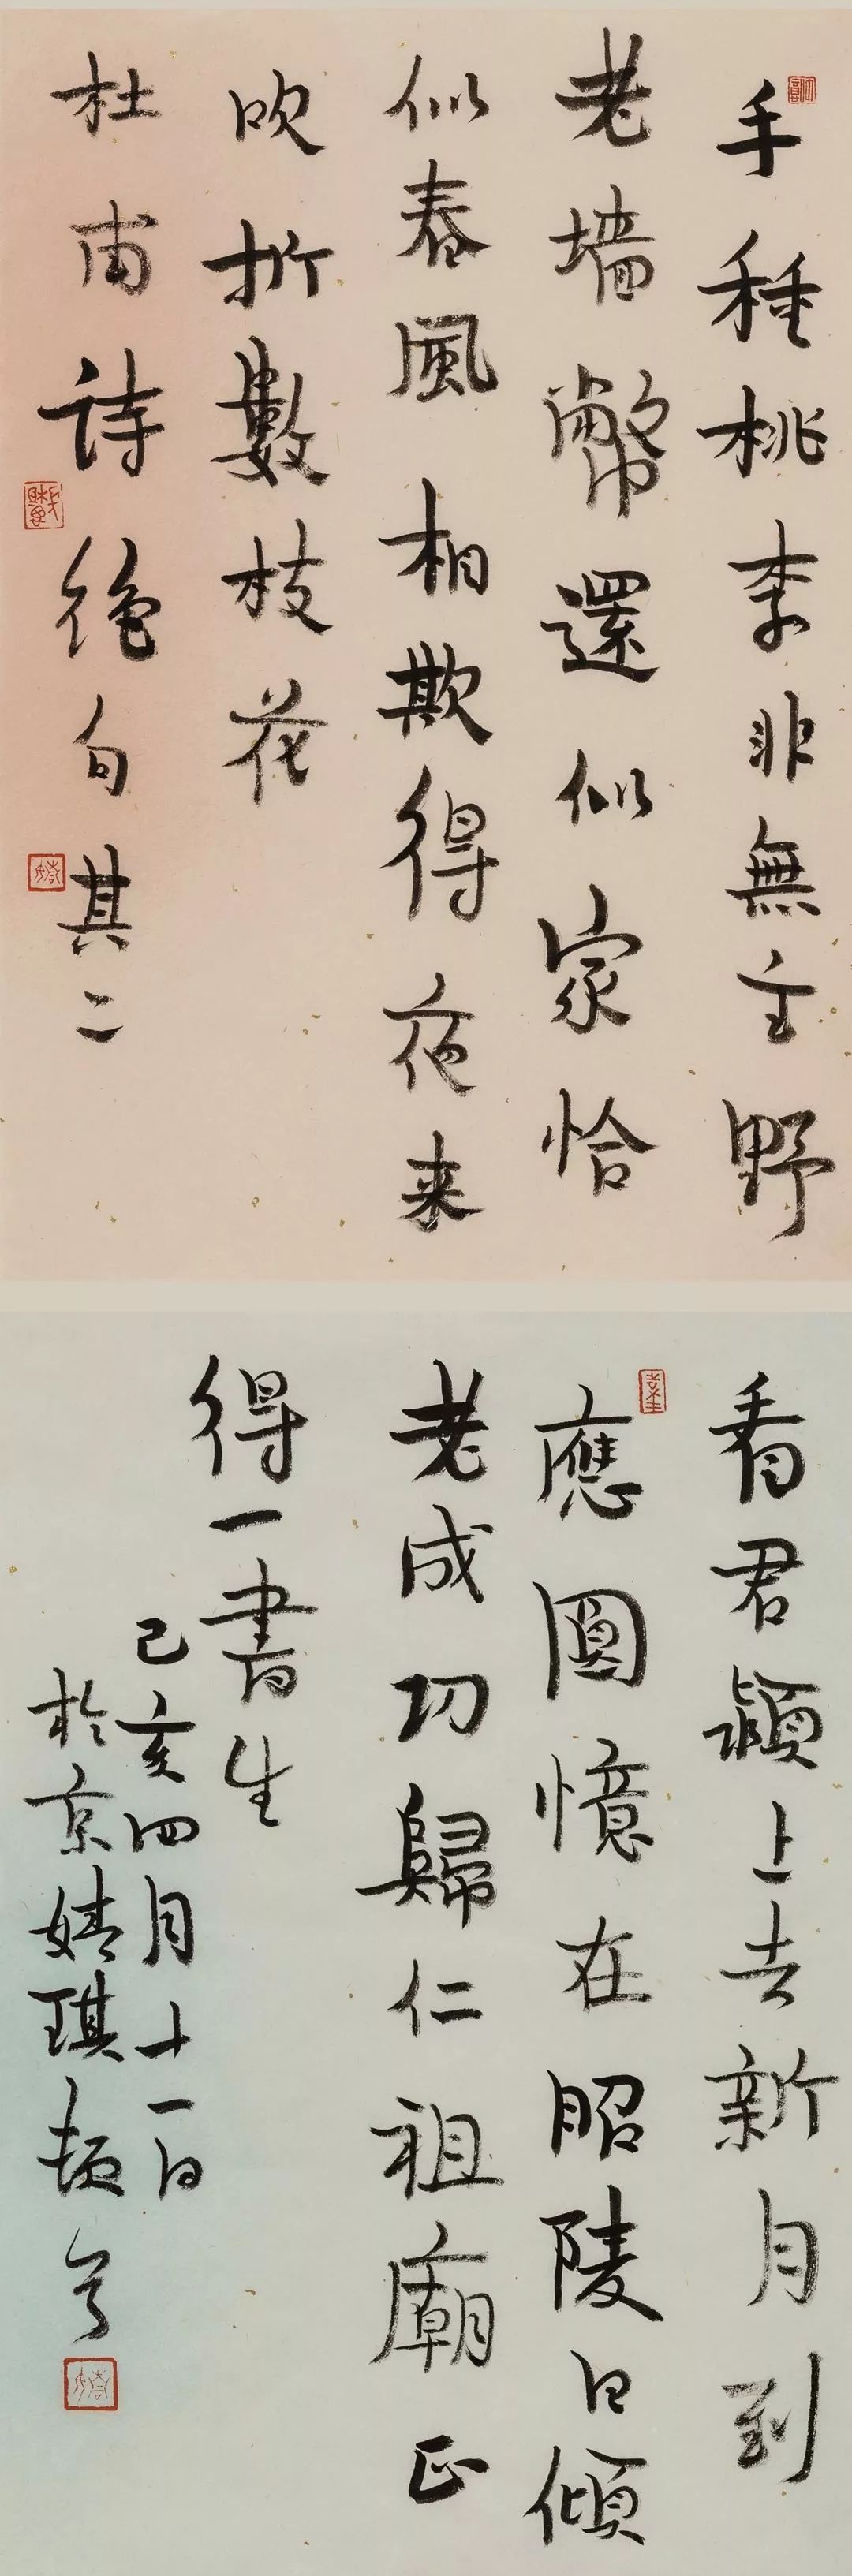 手種桃李非無主野
老墙幣還似家恰
似春風相欺得夜来
吹折數枝花
杜甫詩絕句其二
看君潁上去新月到
應圓憶在昭陵日傾
老成功歸仁祖廟正
得一書生
己亥四月十一日
於京婧琪頓首